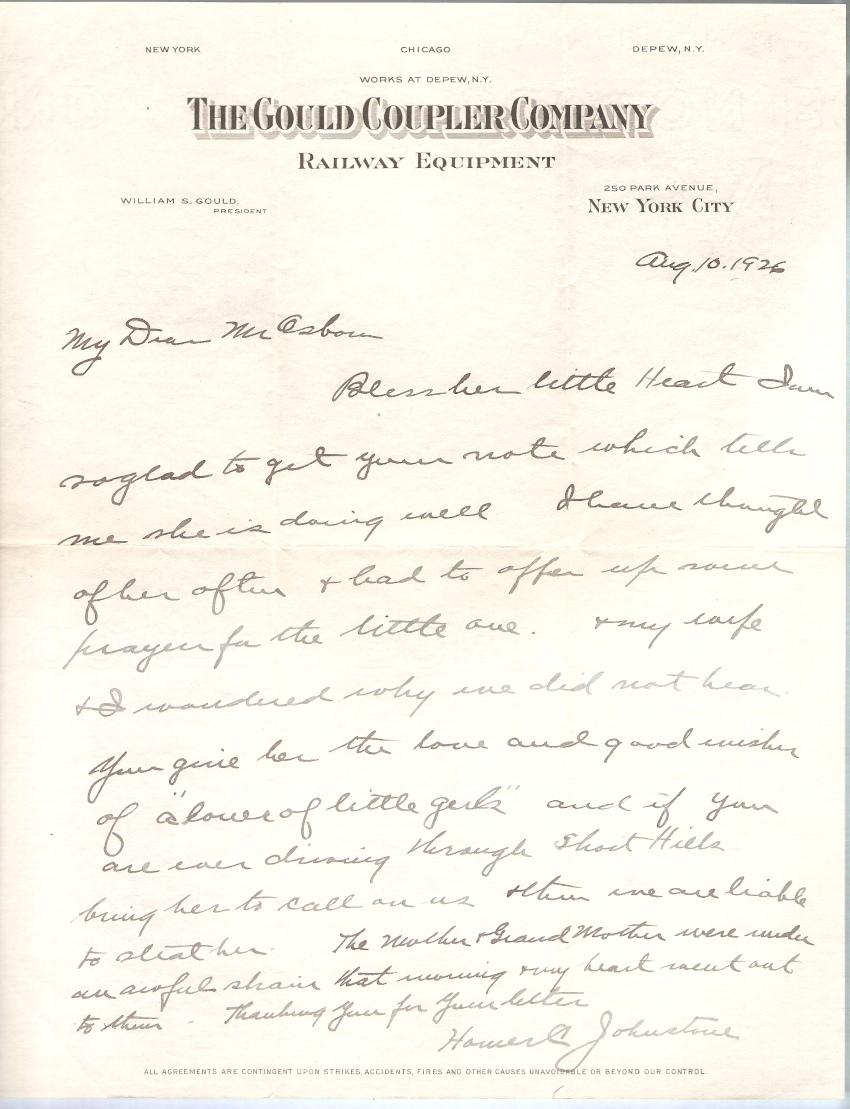 NEW YORK CHICAGO DEPEW, N.Y.
WORKS AT DEPEW, N.Y.
THE GOULD COUPLER COMPANY
RAILWAY EQUIPMENT
WILLIAM S. GOULD,
PRESIDENT
250 PARK AVENUE,
NEW YORK CITY
Aug. 10. 1926
My Dear Mr Osborn
Bless her little Heart I am
so glad to get your note which tells
me she is doing well I have thought
of her often & had to offer up some
prayers for the little one. & my wife
& I wondered why we did not hear.
You give her the love and good wishes
of "a lover of little girls" and if you
are ever driving through Short Hills
bring her to call on us & then we are liable
to steal her. The Mother & Grand Mother were under
an awful strain that morning & my heart went out
to them. Thanking you for your letter
Homer C Johnstone
ALL AGREEMENTS ARE CONTINGENT UPON STRIKES, ACCIDENTS, FIRES AND OTHER CAUSES UNAVOIDABLE OR BEYOND OUR CONTROL.